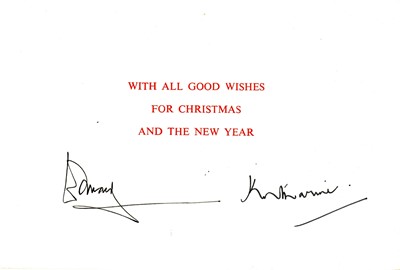 WITH ALL GOOD WISHES
FOR CHRISTMAS
AND THE NEW YEAR
Edward Katharine